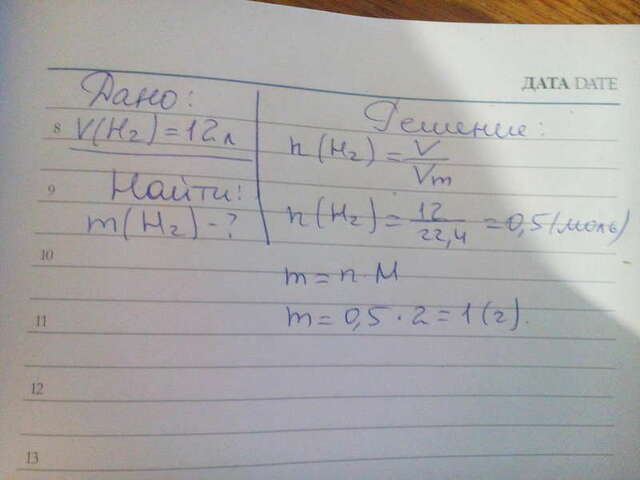 ДАТА DATE
Дано:
8 V(H₂)=12л
9 Найти:
m(H₂)-?
Решение:
n(H₂)=V/Vm
n(H₂)=12/22,4=0,5(моль)
10 m=n·M
11 m=0,5·2=1(г).
12
13